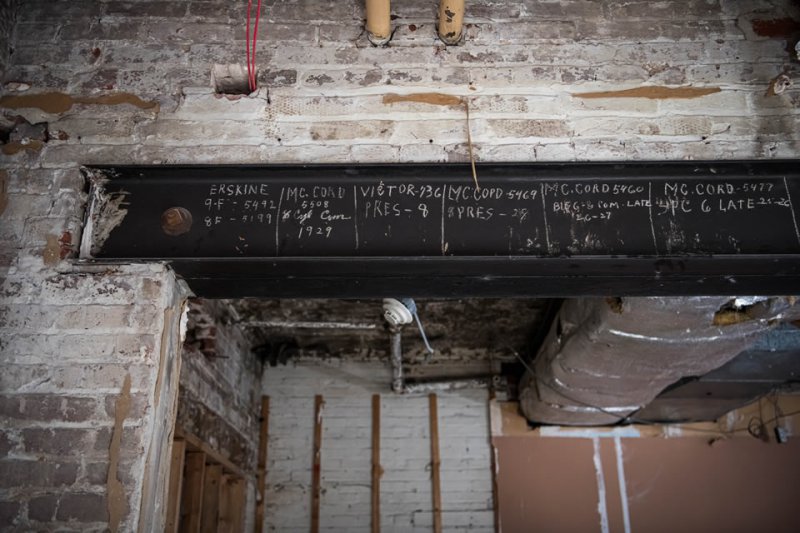 ERSKINE
9-F - 5492
8F - 5199
MC. CORD
5508
6 Cyl Com
1929
VICTOR-736
PRES - 8
MC CORD - 5469
PRES - 
MC. CORD 5460
- 8 COM. LATE
26-27
MC. CORD - 5477
PC 6 LATE 21-26